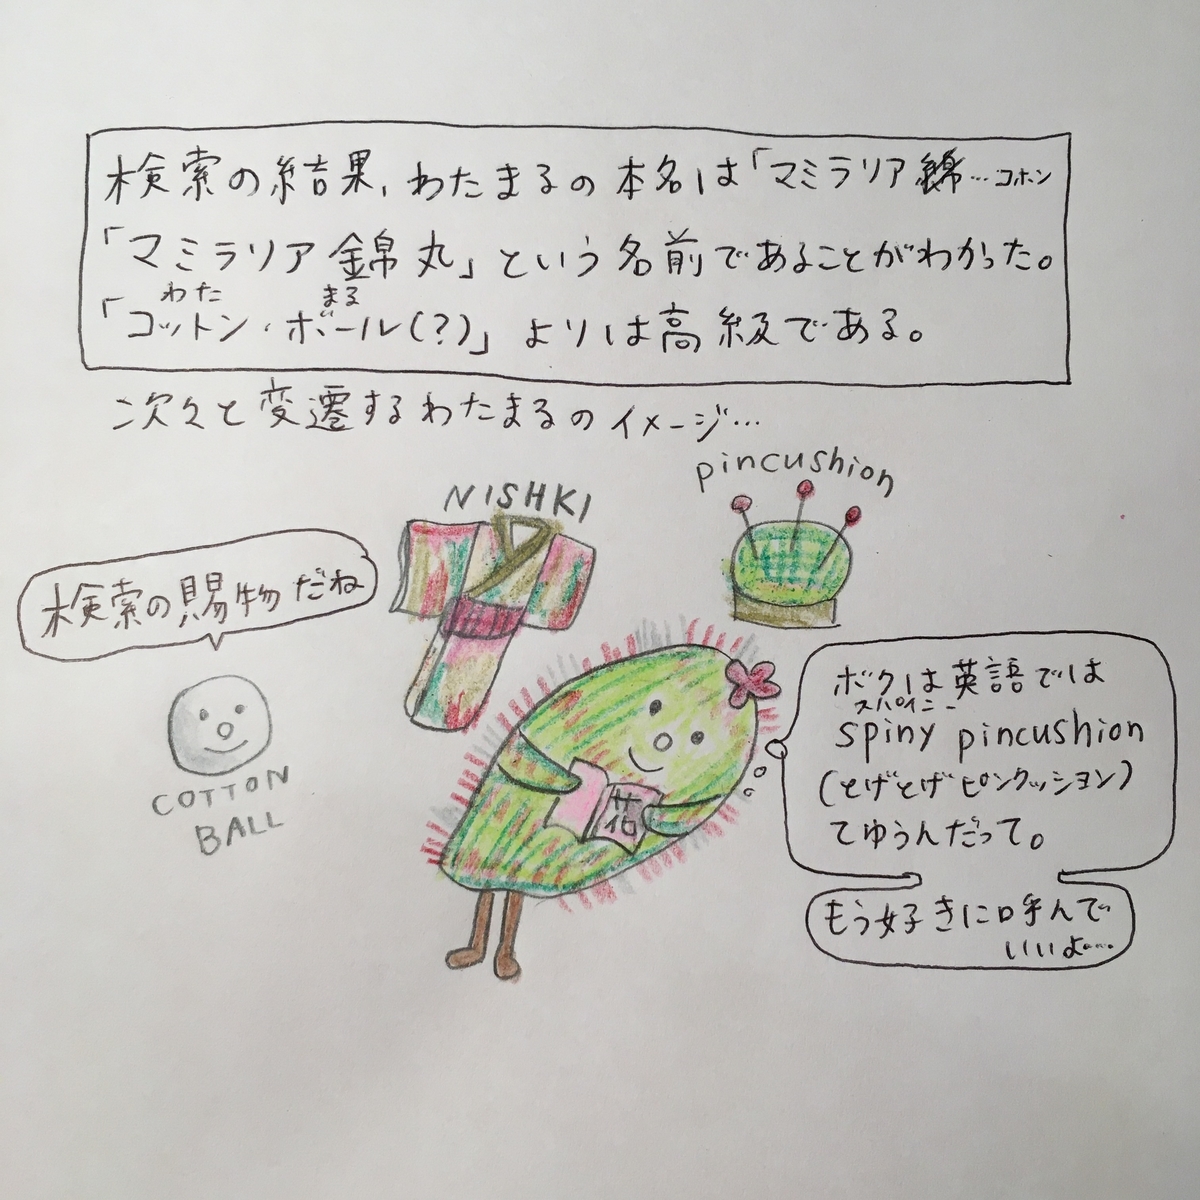 検索の結果、わたまるの本名は「マミラリア綿…コホン
「マミラリア錦丸」という名前であることがわかった。
わた まる
「コットン・ボール(?)」よりは高級である。
次々と変遷するわたまるのイメージ…
NISHKI
pincushion
検索の賜物だね
COTTON
BALL
花
ボクは英語では
スパイニー
spiny pincushion
(とげとげピンクッション)
てゆうんだって。
もう好きに呼んで
いいよ…